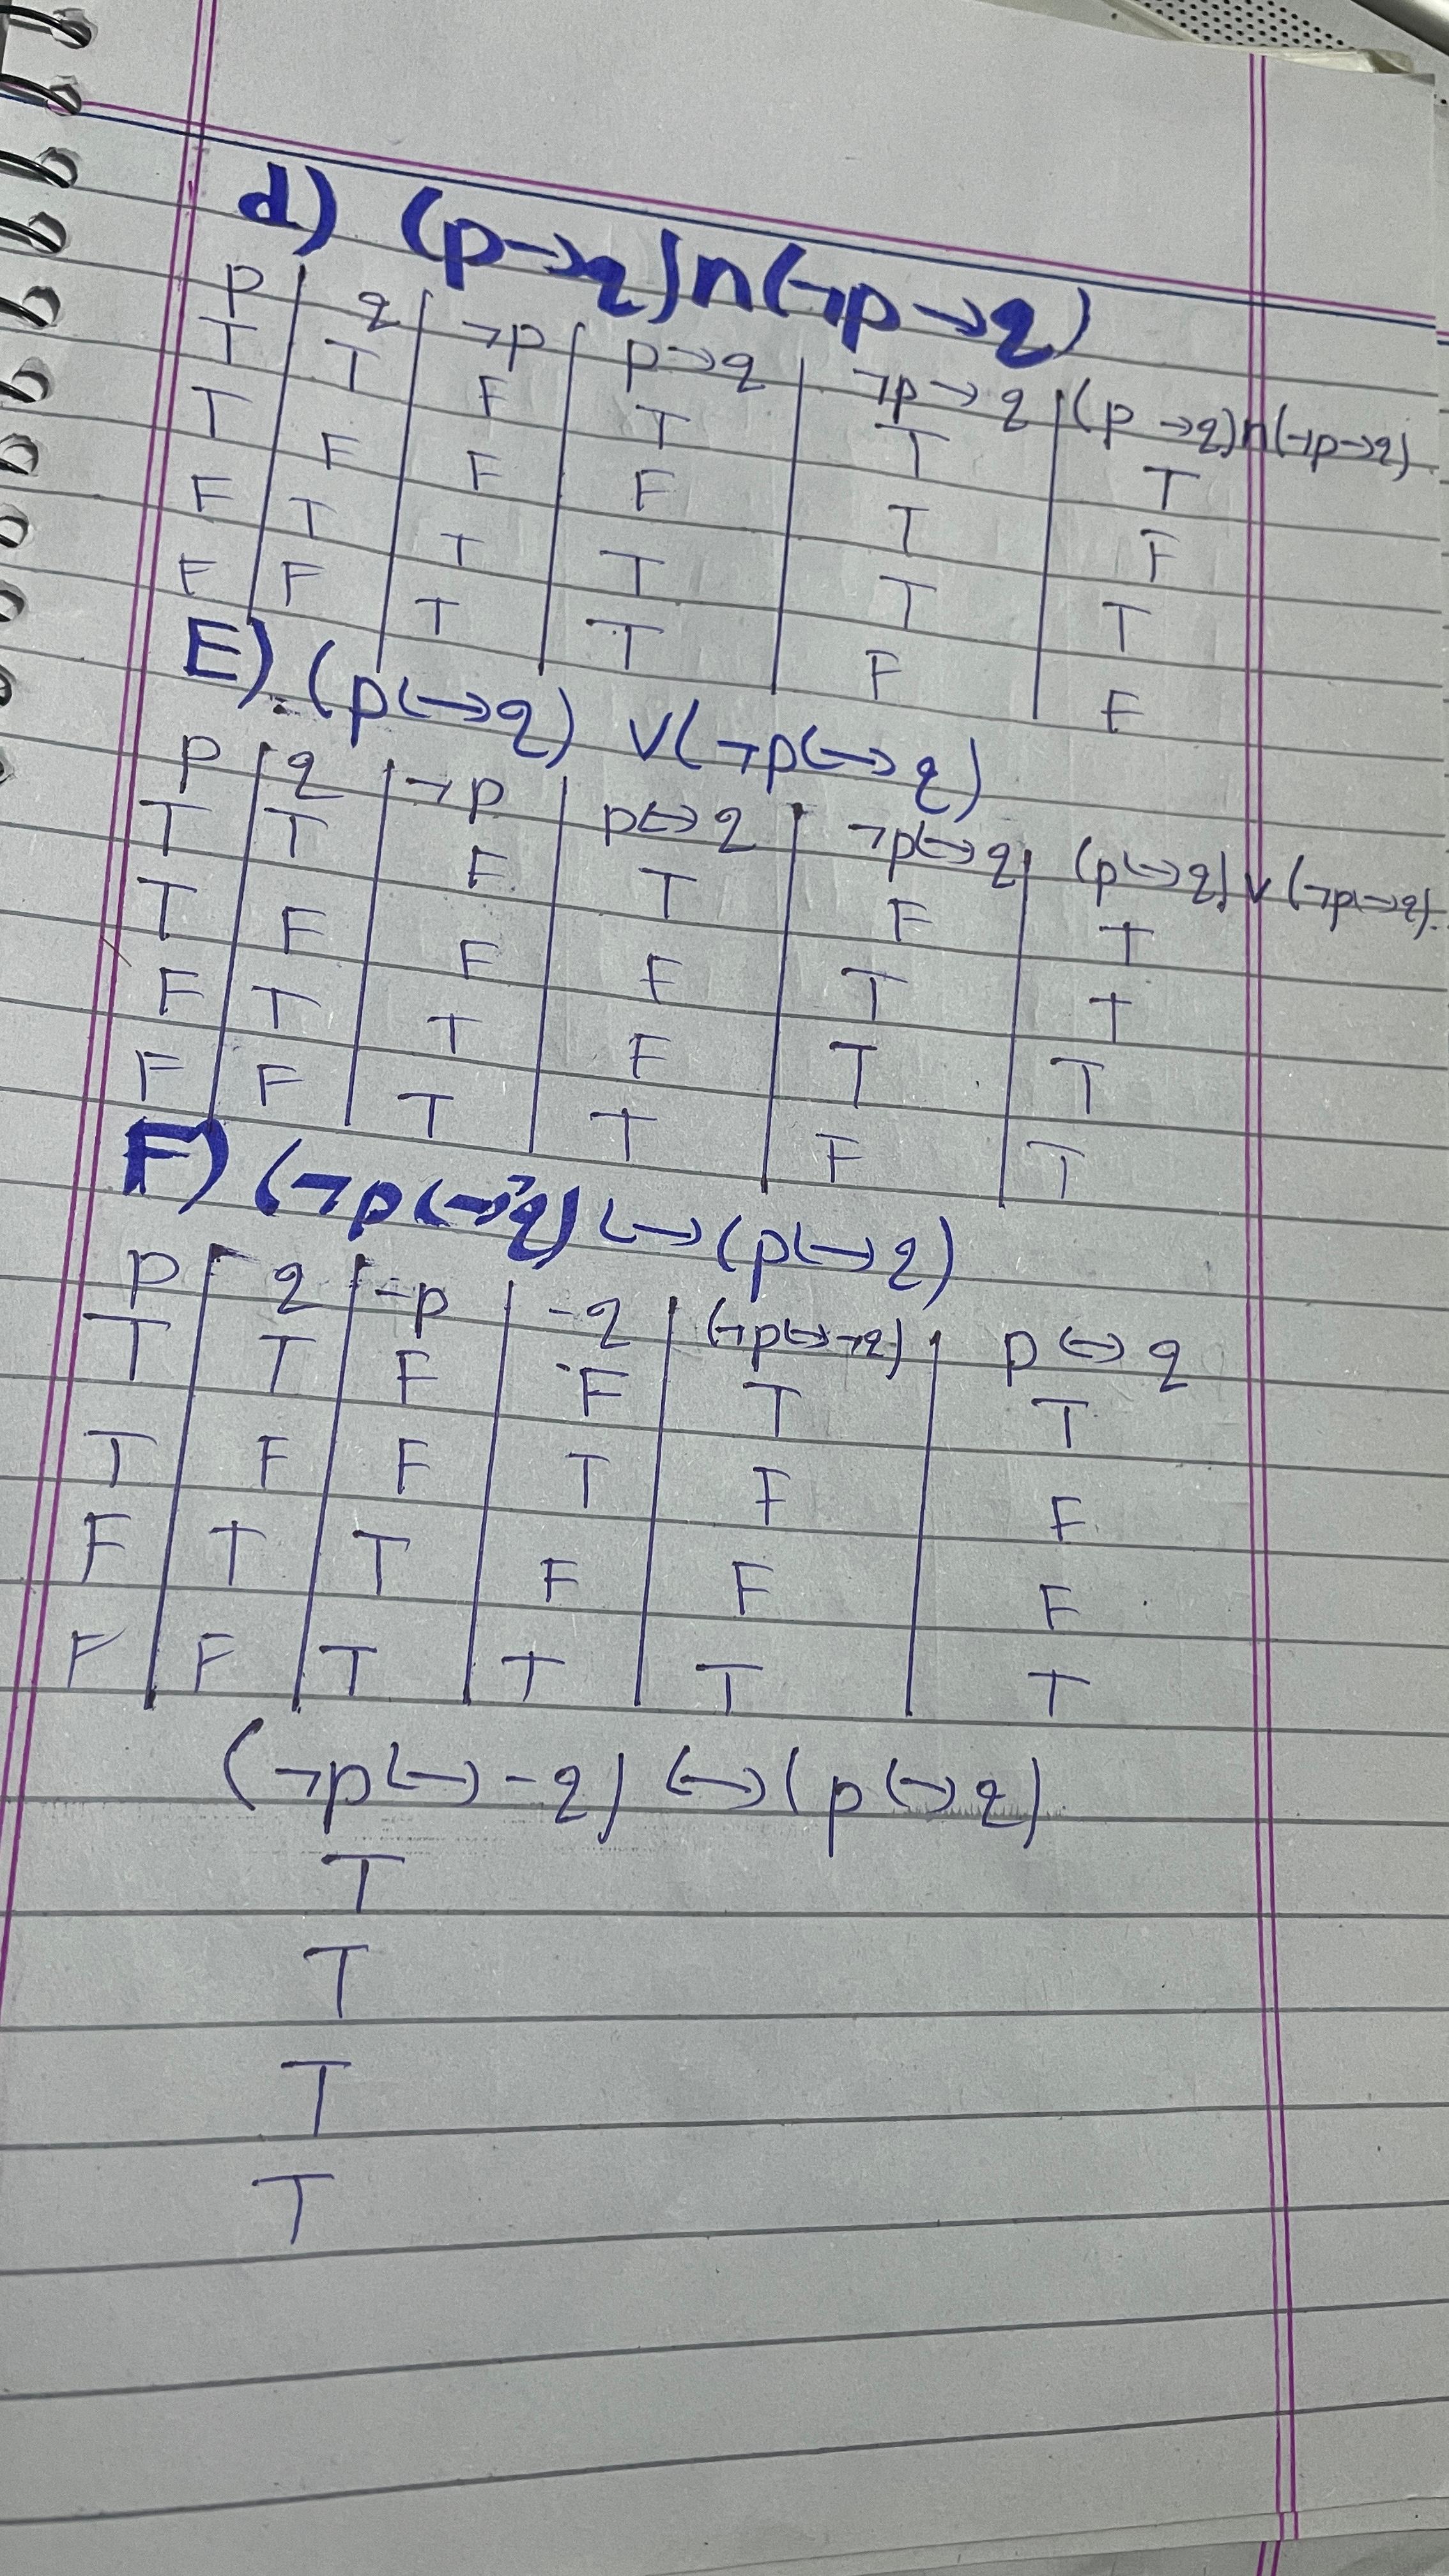 d) (p→q)n(¬p→q)
p q ¬p p→q ¬p→q (p→q)n(¬p→q)
T T F T T T
T F F F T F
F T T T T T
F F T T F F
E). (p↔q) v(¬p↔q)
p q ¬p p↔q ¬p↔q (p↔q) v (¬p↔q).
T T F T F T
T F F F T T
F T T F T T
F F T T F T
F) (¬p↔¬q) ↔(p↔q)
p q -p -q (¬p↔¬q) p↔q
T T F F T T
T F F T F F
F T T F F F
F F T T T T
(¬p↔-q) ↔(p↔q)
T
T
T
T